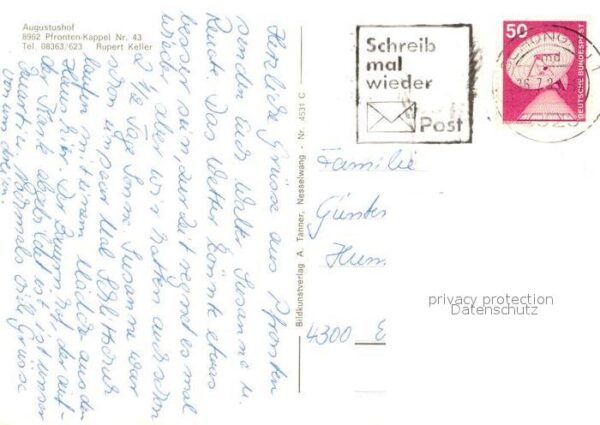 Augustushof
8962 Pfronten-Kappel Nr. 43
Tel. 08363/623 Rupert Keller
Herzliche Grüsse aus Pfronten
senden euch Walter Susanne u.
Renate. Das Wetter könnte etwas
besser sein, zur Zeit regnet es mal
wieder aber wir hatten auch schon
2 1/2 Tage Sonne. Susanne war
schon ein paar Mal
laufen mit einem Mädel aus dem
Haus hier. Der
der abgebildet ist ist unser
Quartier. Nochmals viele Grüsse
von uns dreien.
Bildkunstverlag A. Tanner, Nesselwang - Nr. 4531 C
Schreib
mal
wieder
Post
50
DEUTSCHE BUNDESPOST
Familie
Günter
Hum
4300 E
privacy protection
Datenschutz